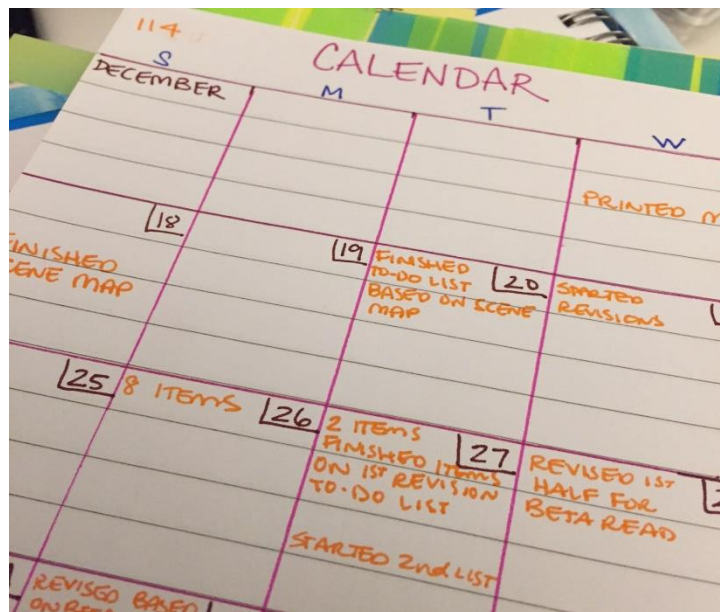 114
CALENDAR
S M T W
DECEMBER
PRINTED
18
FINISHED
SCENE MAP
19
FINISHED
TO-DO LIST
BASED ON SCENE
MAP
20
STARTED
REVISIONS
25
8 ITEMS
26
2 ITEMS
FINISHED ITEMS
ON 1ST REVISION
TO-DO LIST
STARTED 2nd LIST
27
REVISED 1ST
HALF FOR
BETA READ
REVISED BASED